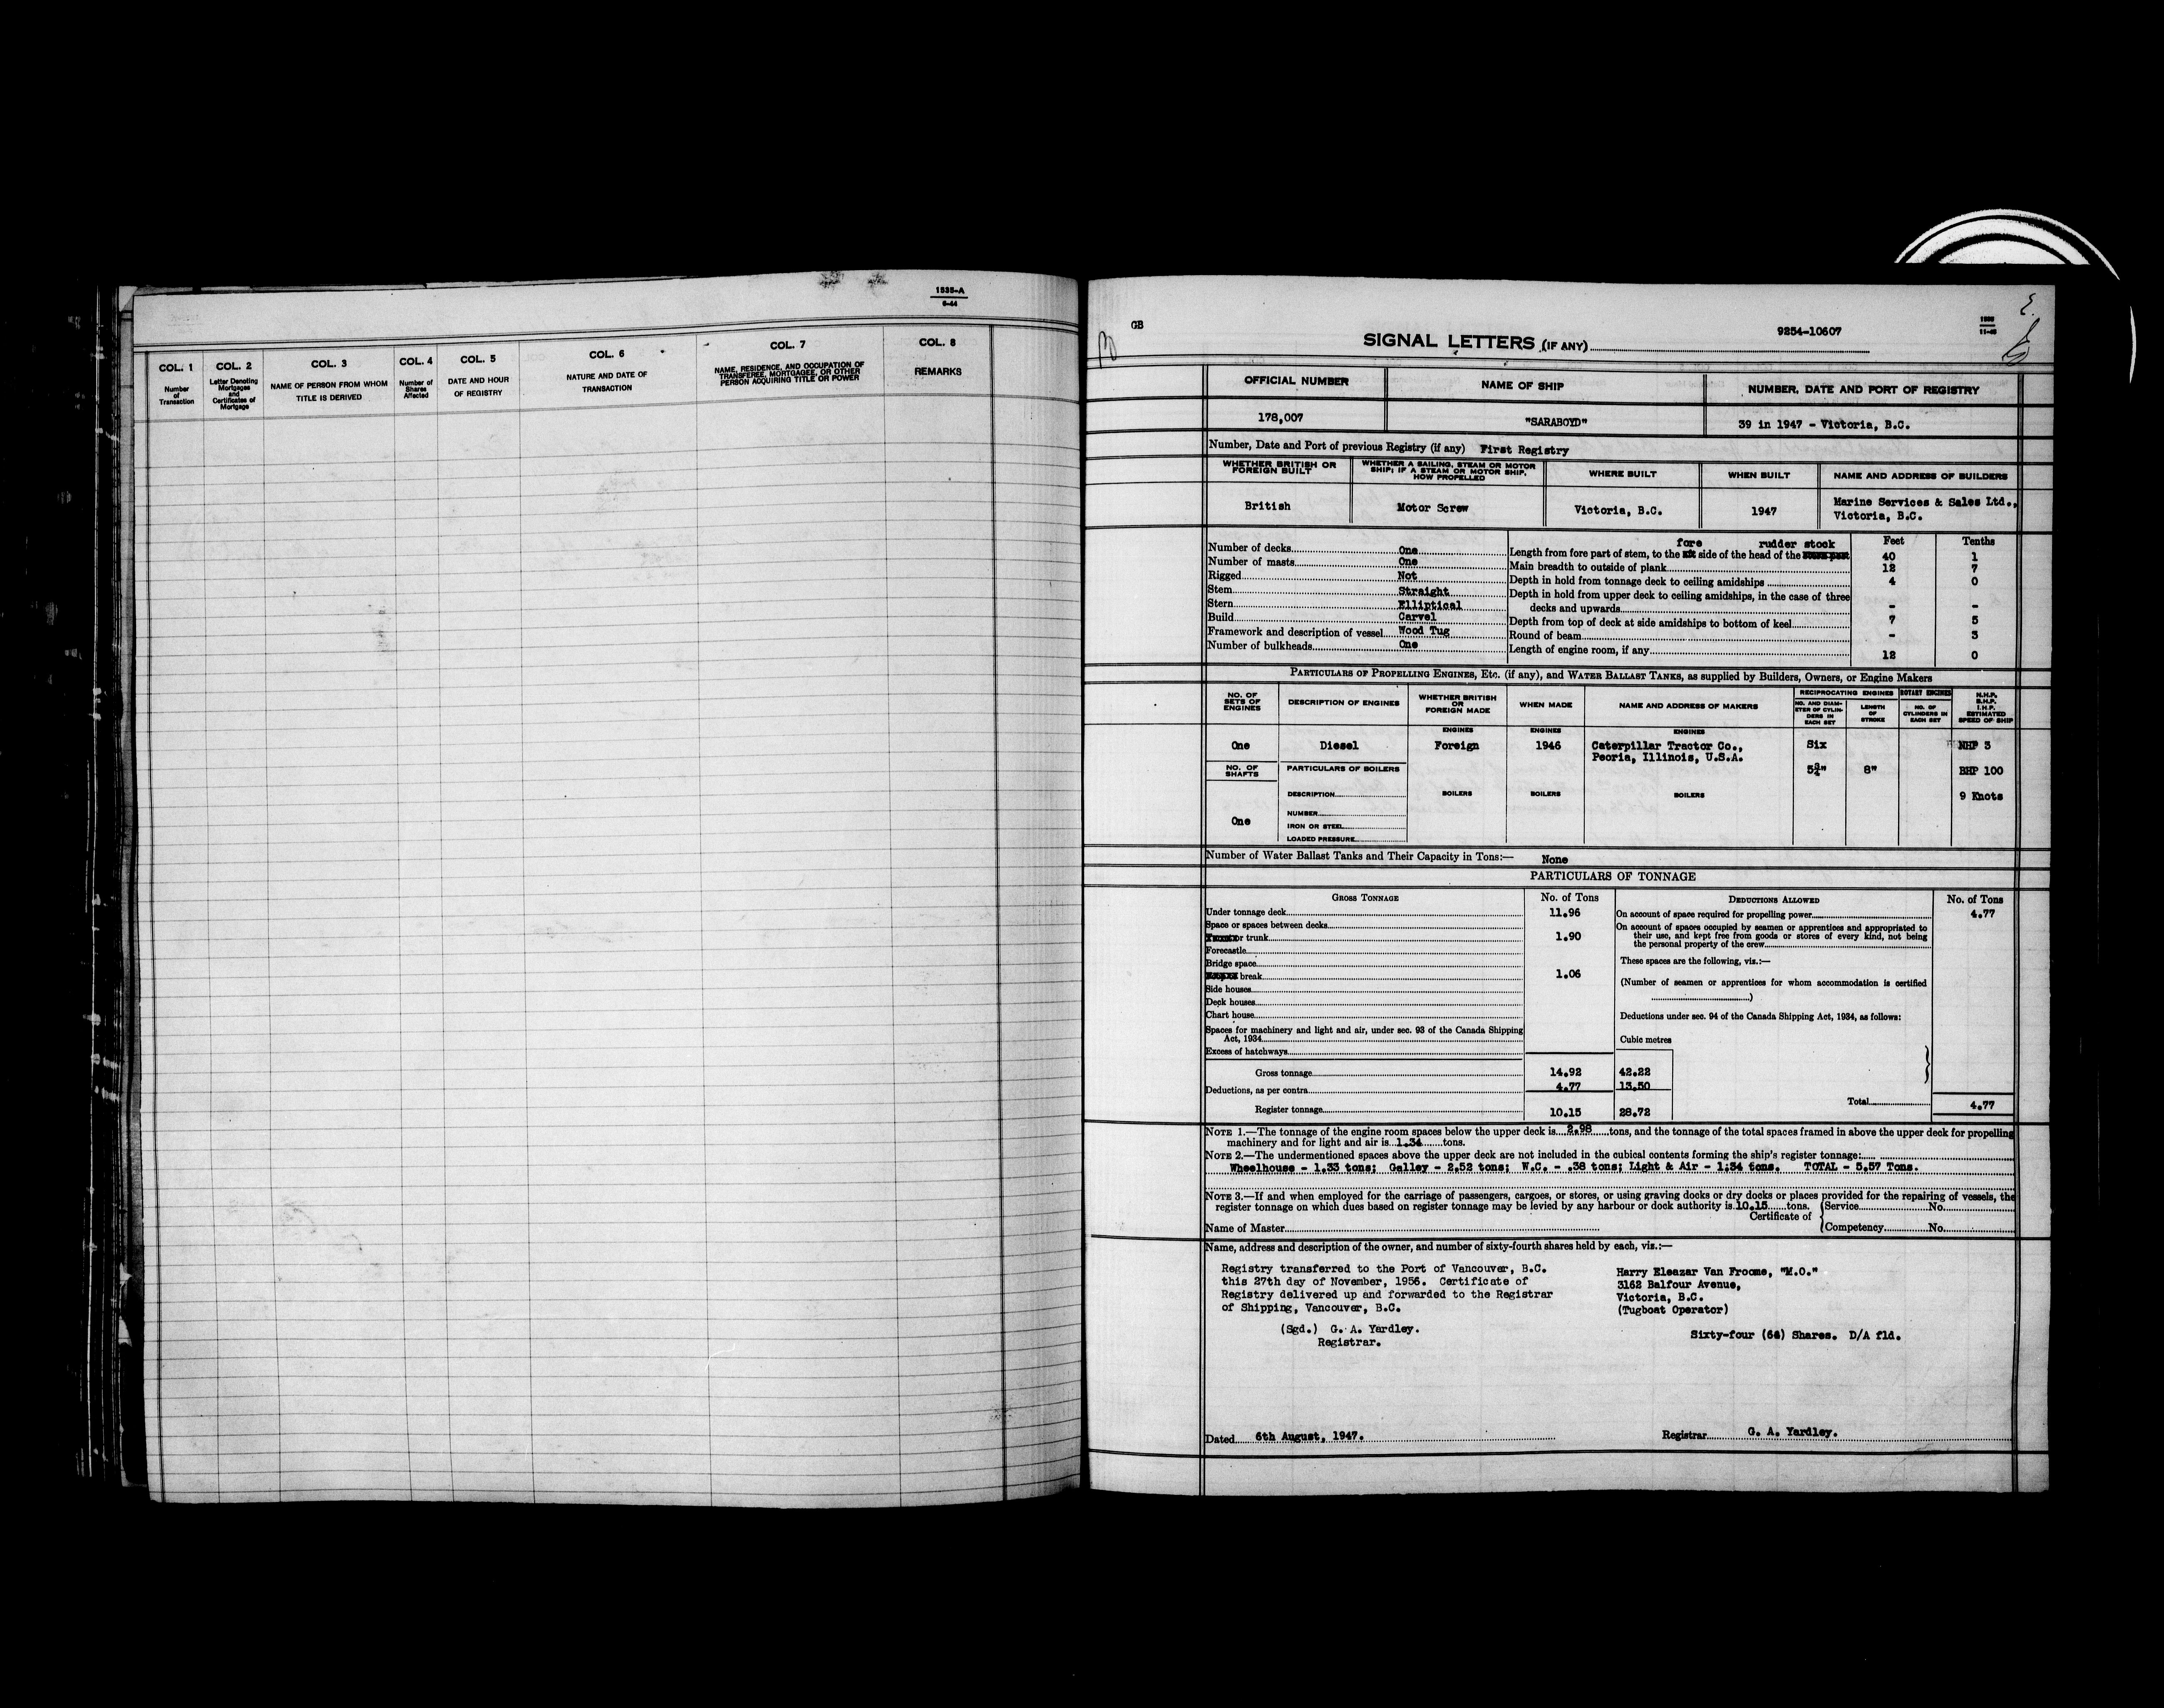 1535-A
6-44
COL. 1
Number
of
Transaction
COL. 2
Letter Denoting
Mortgages
and
Certificates of
Mortgage
COL. 3
NAME OF PERSON FROM WHOM
TITLE IS DERIVED
COL. 4
Number of
Shares
Affected
COL. 5
DATE AND HOUR
OF REGISTRY
COL. 6
NATURE AND DATE OF
TRANSACTION
COL. 7
NAME, RESIDENCE, AND OCCUPATION OF
TRANSFEREE, MORTGAGEE, OR OTHER
PERSON ACQUIRING TITLE OR POWER
COL. 8
REMARKS
GB
9254-10607
SIGNAL LETTERS (IF ANY)
OFFICIAL NUMBER NAME OF SHIP NUMBER, DATE AND PORT OF REGISTRY
178,007 "SARABOYD" 39 in 1947 - Victoria, B.C.
Number, Date and Port of previous Registry (if any) First Registry
WHETHER BRITISH OR
FOREIGN BUILT
WHETHER A SAILING, STEAM OR MOTOR
SHIP; IF A STEAM OR MOTOR SHIP,
HOW PROPELLED
WHERE BUILT
WHEN BUILT
NAME AND ADDRESS OF BUILDERS
British Motor Screw Victoria, B.C. 1947 Marine Services & Sales Ltd.,
Victoria, B.C.
Number of decks One
Number of masts One
Rigged Not
Stem Straight
Stern Elliptical
Build Carvel
Framework and description of vessel Wood Tug
Number of bulkheads One
Feet Tenths
fore rudder stock
Length from fore part of stem, to the side of the head of the 40 1
Main breadth to outside of plank 12 7
Depth in hold from tonnage deck to ceiling amidships 4 0
Depth in hold from upper deck to ceiling amidships, in the case of three
decks and upwards - -
Depth from top of deck at side amidships to bottom of keel 7 5
Round of beam - 3
Length of engine room, if any 12 0
PARTICULARS OF PROPELLING ENGINES, ETC. (if any), and WATER BALLAST TANKS, as supplied by Builders, Owners, or Engine Makers
NO. OF
SETS OF
ENGINES
DESCRIPTION OF ENGINES
WHETHER BRITISH
OR
FOREIGN MADE
WHEN MADE
NAME AND ADDRESS OF MAKERS
RECIPROCATING ENGINES
NO. AND DIAM-
ETER OF CYLIN-
DERS IN
EACH SET
LENGTH
OF
STROKE
ROTARY ENGINES
NO. OF
CYLINDERS IN
EACH SET
N.H.P.
B.H.P.
I.H.P.
ESTIMATED
SPEED OF SHIP
ENGINES ENGINES ENGINES
One Diesel Foreign 1946 Caterpillar Tractor Co., Six NHP 3
Peoria, Illinois, U.S.A.
NO. OF
SHAFTS
PARTICULARS OF BOILERS
5¾" 8" BHP 100
DESCRIPTION BOILERS BOILERS BOILERS 9 Knots
NUMBER
One
IRON OR STEEL
LOADED PRESSURE
Number of Water Ballast Tanks and Their Capacity in Tons:— None
PARTICULARS OF TONNAGE
GROSS TONNAGE No. of Tons
Under tonnage deck 11.96
Space or spaces between decks
or trunk 1.90
Forecastle
Bridge space
break 1.06
Side houses
Deck houses
Chart house
Spaces for machinery and light and air, under sec. 93 of the Canada Shipping
Act, 1934
Excess of hatchways
Gross tonnage 14.92 42.22
Deductions, as per contra 4.77 13.50
Register tonnage 10.15 28.72
DEDUCTIONS ALLOWED No. of Tons
On account of space required for propelling power 4.77
On account of spaces occupied by seamen or apprentices and appropriated to
their use, and kept free from goods or stores of every kind, not being
the personal property of the crew
These spaces are the following, viz.:—
(Number of seamen or apprentices for whom accommodation is certified
)
Deductions under sec. 94 of the Canada Shipping Act, 1934, as follows:
Cubic metres
Total 4.77
NOTE 1.—The tonnage of the engine room spaces below the upper deck is 2.98 tons, and the tonnage of the total spaces framed in above the upper deck for propelling
machinery and for light and air is 1.34 tons.
NOTE 2.—The undermentioned spaces above the upper deck are not included in the cubical contents forming the ship's register tonnage:
Wheelhouse - 1.33 tons; Galley - 2.52 tons; W.C. - .38 tons; Light & Air - 1.34 tons. TOTAL - 5.57 Tons.
NOTE 3.—If and when employed for the carriage of passengers, cargoes, or stores, or using graving docks or dry docks or places provided for the repairing of vessels, the
register tonnage on which dues based on register tonnage may be levied by any harbour or dock authority is 10.15 tons.
Certificate of
Service No.
Competency No.
Name of Master
Name, address and description of the owner, and number of sixty-fourth shares held by each, viz.:—
Registry transferred to the Port of Vancouver, B.C.
this 27th day of November, 1956. Certificate of
Registry delivered up and forwarded to the Registrar
of Shipping, Vancouver, B.C.
(Sgd.) G. A. Yardley.
Registrar.
Harry Eleazar Van Froome, "M.O."
3162 Balfour Avenue,
Victoria, B.C.
(Tugboat Operator)
Sixty-four (64) Shares. D/A fld.
Dated 6th August, 1947.
Registrar G. A. Yardley.